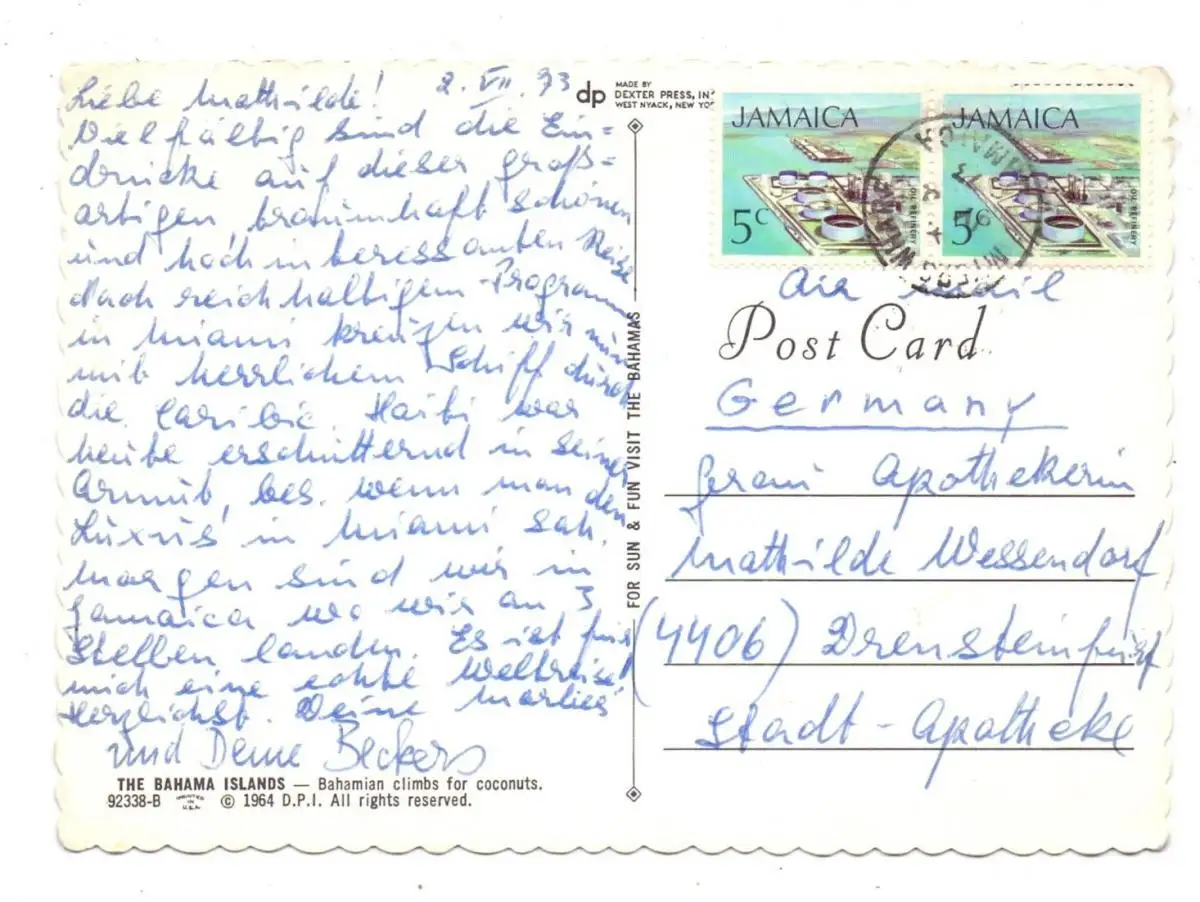 Liebe Mathilde! 2. VII. 73
Vielfältig sind die Ein=
drücke auf dieser groß=
artigen, traumhaft schönen
und hochinteressanten Reise
Nach reichhaltigem Programm
in Miami kreuzen wir nun
mit herrlichem Schiff durch
die Caribic. Haiti war
heute erschütternd in seiner
Armut, bes. wenn man den
Luxus in Miami sah.
Morgen sind wir in
Jamaica wo wir an 3
Stellen landen. Es ist für
mich eine echte Weltreise!
Herzlichst. Deine Marlies
und Deine Beckers
THE BAHAMA ISLANDS — Bahamian climbs for coconuts.
92338-B PRINTED IN U.S.A. © 1964 D.P.I. All rights reserved.
dp MADE BY
DEXTER PRESS, IN
WEST NYACK, NEW YO
FOR SUN & FUN VISIT THE BAHAMAS
JAMAICA
5c
OIL REFINERY
JAMAICA
5c
OIL REFINERY
Air mail
Post Card
Germany
Frau Apothekerin
Mathilde Wessendorf
(4406) Drensteinfurt
Stadt-Apotheke